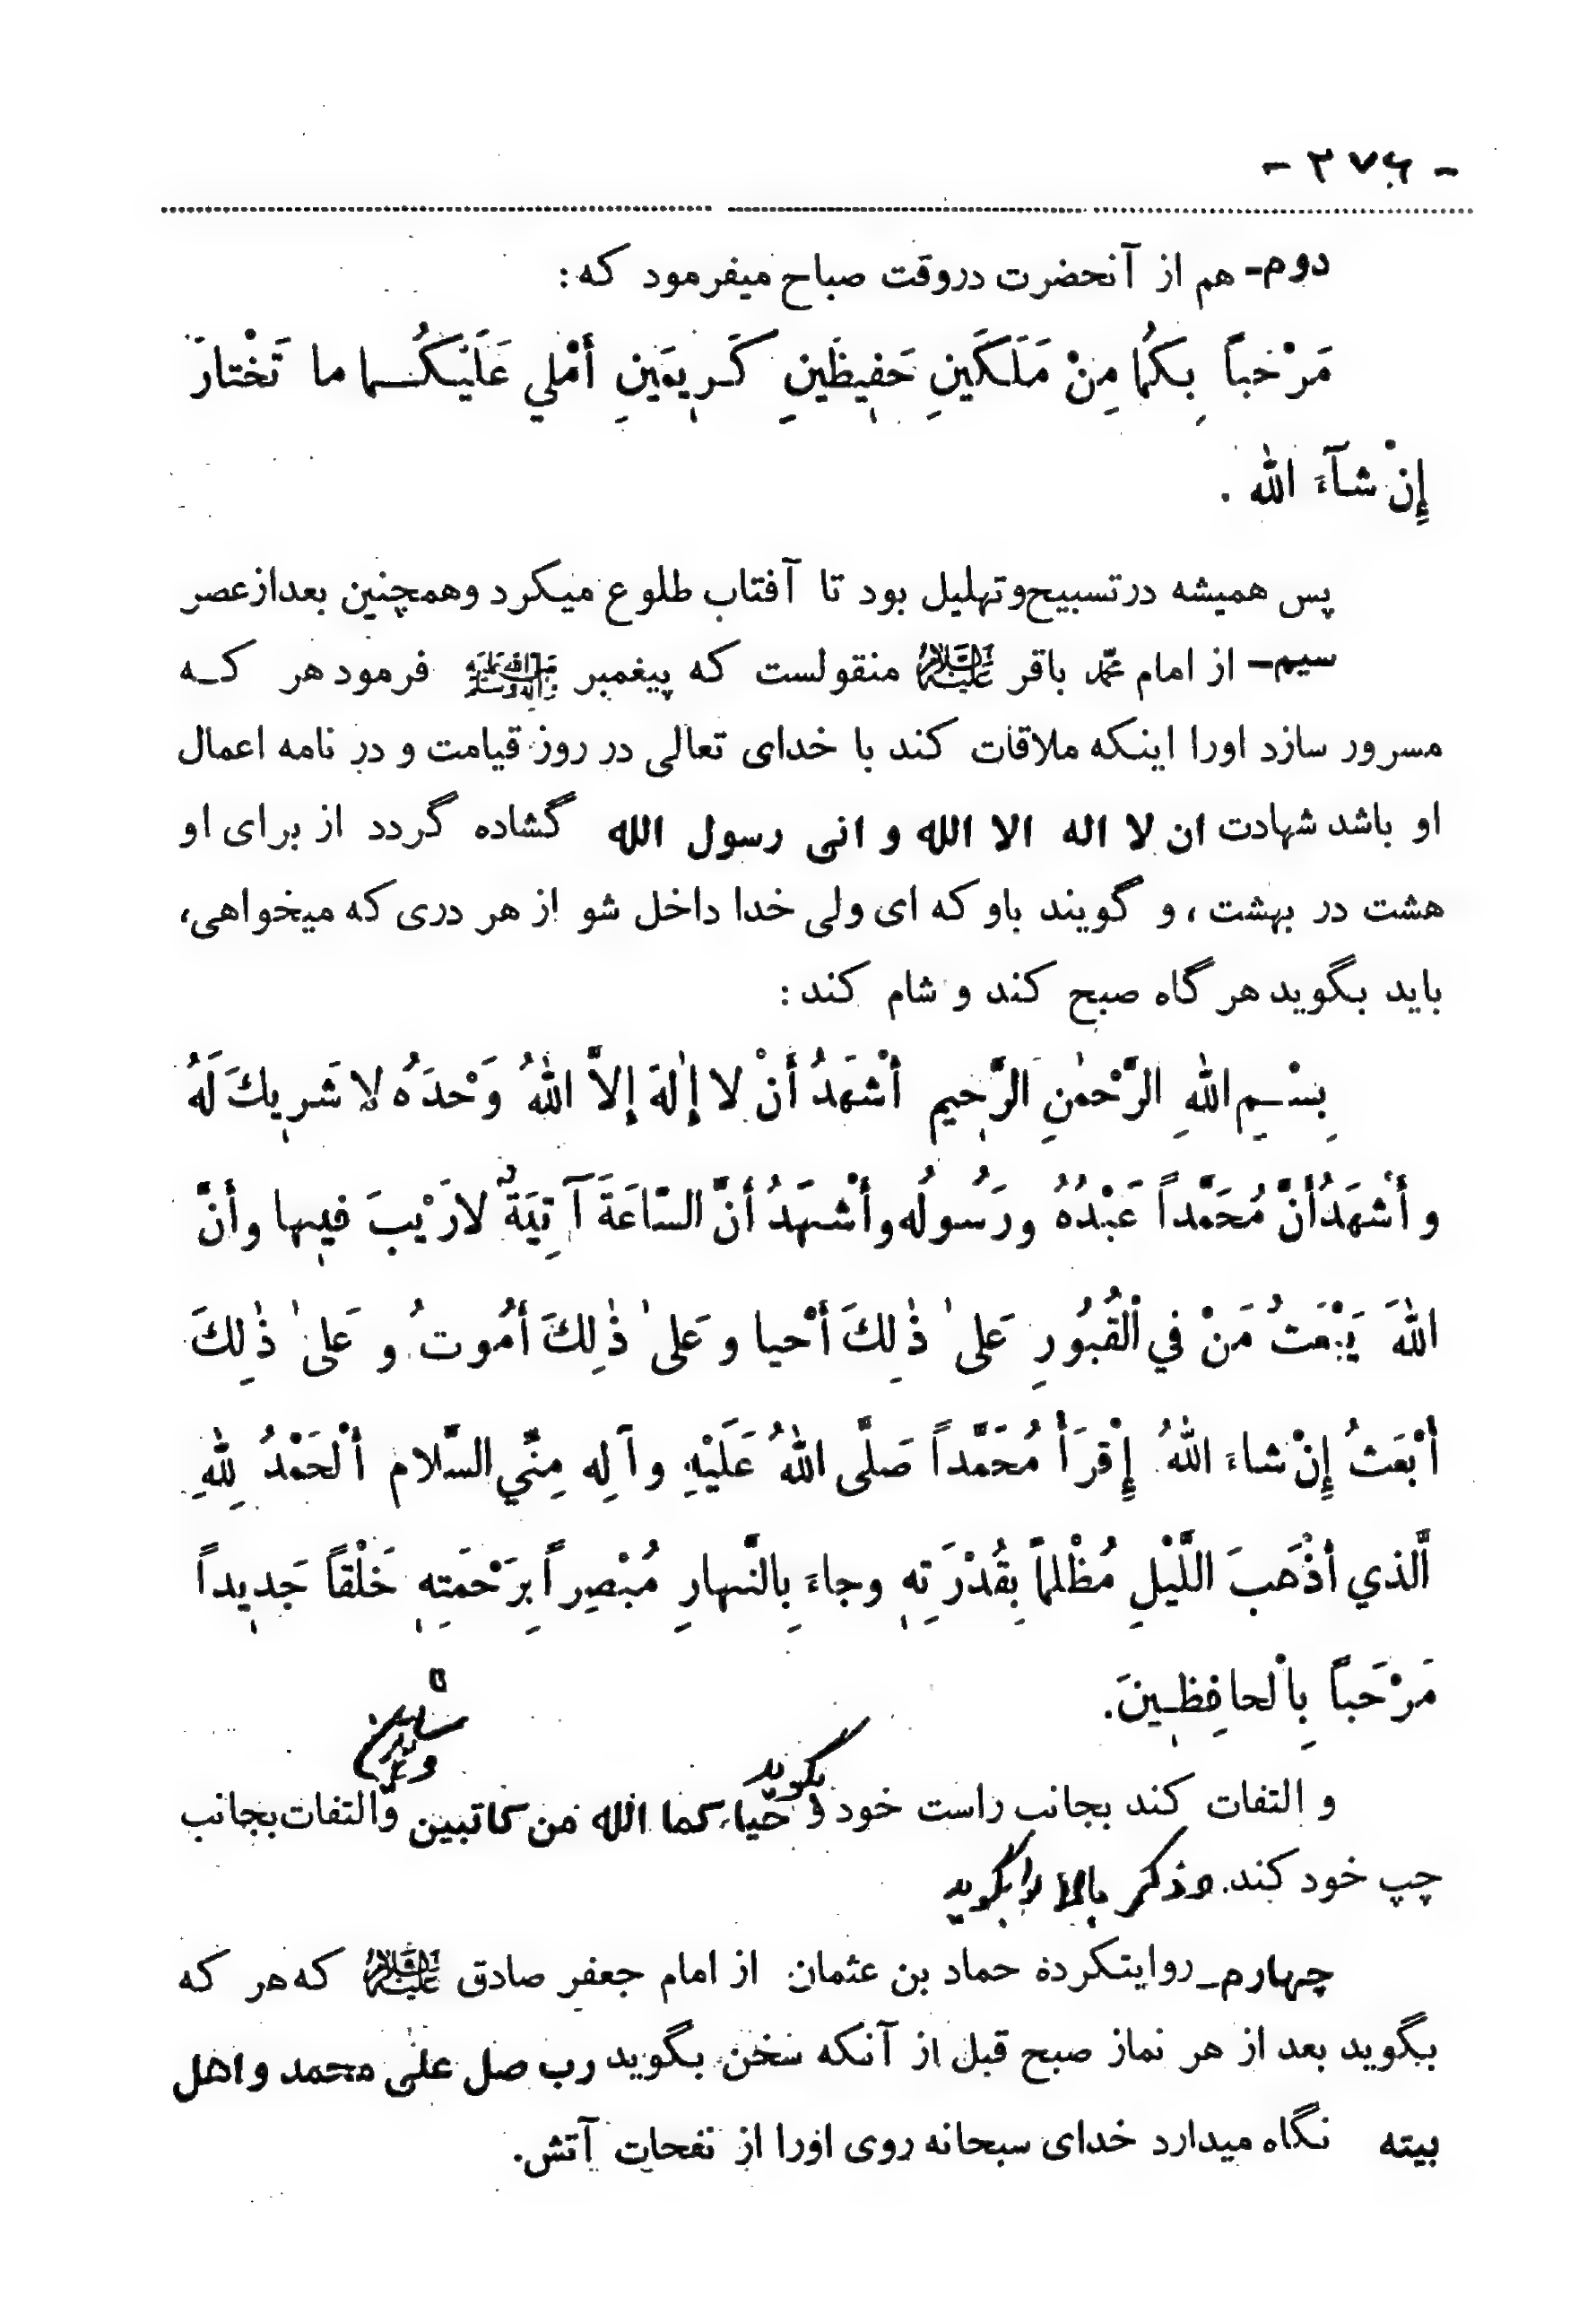 - ۲۷۶ -
دوم- هم از آنحضرت دروقت صباح میفرمود که:
مَرْحَباً بِكُما مِنْ مَلَكَينِ حَفِيظَينِ كَرِيمَينِ أُمْلِي عَلَيْكُما ما تَخْتارَ
إِنْ شآءَ اللهُ .
پس همیشه درتسبیح وتهلیل بود تا آفتاب طلوع میکرد وهمچنین بعدازعصر
سیم- از امام محمّد باقر علیه‌السلام منقولست که پیغمبر صلی‌الله‌علیه‌وآله‌وسلم فرمود هر کـه
مسرور سازد اورا اینکه ملاقات کند با خدای تعالی در روز قیامت و در نامه اعمال
او باشد شهادت ان لا اله الا الله و انی رسول الله گشاده گردد از برای او
هشت در بهشت ، و گویند باو که ای ولی خدا داخل شو از هر دری که میخواهی،
باید بگوید هر گاه صبح کند و شام کند:
بِسْمِ اللهِ الرَّحْمٰنِ الرَّحِيمِ أَشْهَدُ أَنْ لا إِلٰهَ إِلاَّ اللهُ وَحْدَهُ لا شَرِيكَ لَهُ
و أَشْهَدُ أَنَّ مُحَمَّداً عَبْدُهُ ورَسُولُه وأَشْهَدُ أَنَّ السّاعَةَ آتِيَةٌ لا رَيْبَ فيها وأَنَّ
اللهَ يَبْعَثُ مَنْ في الْقُبُورِ عَلىٰ ذٰلِكَ أَحْيا و عَلىٰ ذٰلِكَ أَمُوتُ و عَلىٰ ذٰلِكَ
أُبْعَثُ إِنْ شاءَ اللهُ إِقْرَأْ مُحَمَّداً صَلَّى اللهُ عَلَيْهِ وآلِه مِنّي السَّلام أَلْحَمْدُ لِلّٰهِ
الَّذي أَذْهَبَ اللَّيْلِ مُظْلِماً بِقُدْرَتِهِ وجاءَ بِالنَّهارِ مُبْصِراً بِرَحْمَتِهِ خَلْقاً جَديداً
مَرْحَباً بِالْحافِظينَ.
و التفات کند بجانب راست خود و بگوید حیاء کما الله من کاتبین والتفات بجانب
چپ خود کند. و ذکر بالا را بگوید
چهارم- روایتکرده حماد بن عثمان از امام جعفر صادق علیه‌السلام که هر که
بگوید بعد از هر نماز صبح قبل از آنکه سخن بگوید رب صل علی محمد و اهل
بیته نگاه میدارد خدای سبحانه روی اورا از نفحات آتش.